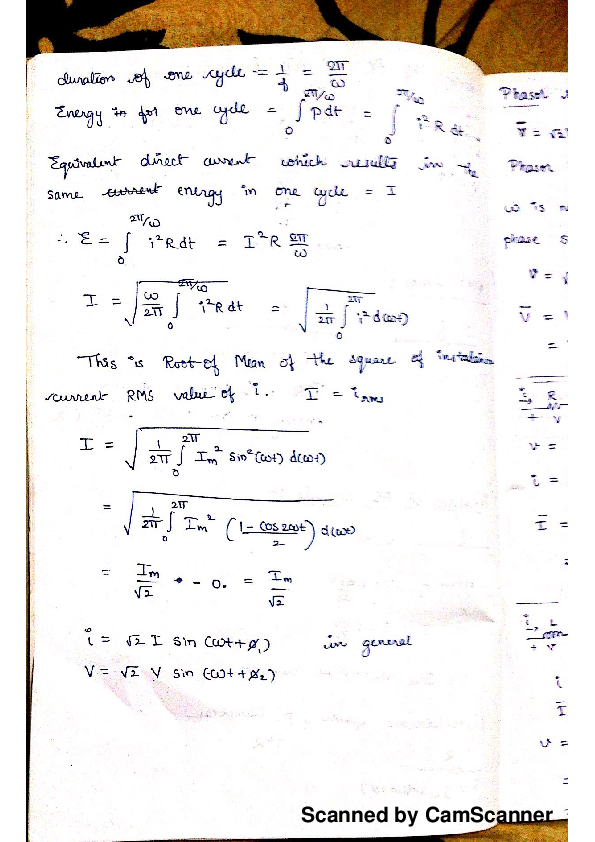 duration of one cycle = 1/f = 2π/ω
Energy in for one cycle = ∫₀^{2π/ω} p dt = ∫₀^{2π/ω} i²R dt
Equivalent direct current which results in the
same current energy in one cycle = I
∴ E = ∫₀^{2π/ω} i²R dt = I²R 2π/ω
I = √(ω/2π ∫₀^{2π/ω} i²R dt) = √(1/2π ∫₀^{2π} i² d(ωt))
This is Root of Mean of the square of
current RMS value of i. I = i_rms
I = √(1/2π ∫₀^{2π} I_m² sin²(ωt) d(ωt))
= √(1/2π ∫₀^{2π} I_m² ((1 - cos2ωt)/2) d(ωt))
= I_m/√2 - 0. = I_m/√2
i = √2 I sin (ωt + φ₁) in general
V = √2 V sin (ωt + φ₂)
Phasor
V̄ = √2
Phasor
ω is
phase
V =
V̄ =
=
i, R
+ V
v =
i =
Ī =
i, L
+ V
i
Ī
v =
=
Scanned by CamScanner